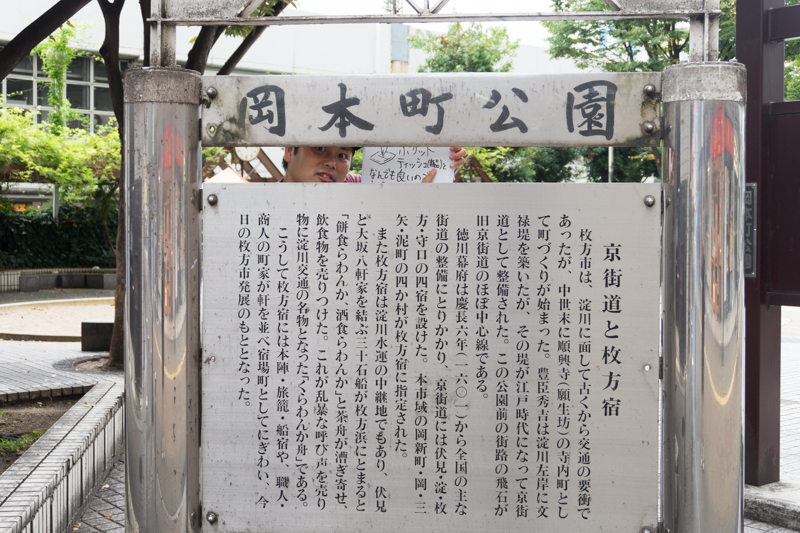 岡本町公園
ポリット
ティッシュ(箱)と
なんでも
良いので
京街道と枚方宿
枚方市は、淀川に面して古くから交通の要衝で
あったが、中世末に順興寺(願生坊)の寺内町とし
て町づくりが始まった。豊臣秀吉は淀川左岸に文
禄堤を築いたが、その堤が江戸時代になって京街
道として整備された。この公園前の街路の飛石が
旧京街道のほぼ中心線である。
徳川幕府は慶長六年(一六〇一)から全国の主な
街道の整備にとりかかり、京街道には伏見・淀・枚
方・守口の四宿を設けた。本市域の岡新町・岡・三
矢・泥町の四か村が枚方宿に指定された。
また枚方宿は淀川水運の中継地でもあり、伏見
と大坂八軒家を結ぶ三十石船が枚方浜にとまると
「餅食らわんか、酒食らわんか」と茶舟が漕ぎ寄せ、
飲食物を売りつけた。これが乱暴な呼び声を売り
物に淀川交通の名物となった「くらわんか舟」である。
こうして枚方宿には本陣・旅籠・船宿や、職人・
商人の町家が軒を並べ宿場町としてにぎわい、今
日の枚方市発展のもととなった。